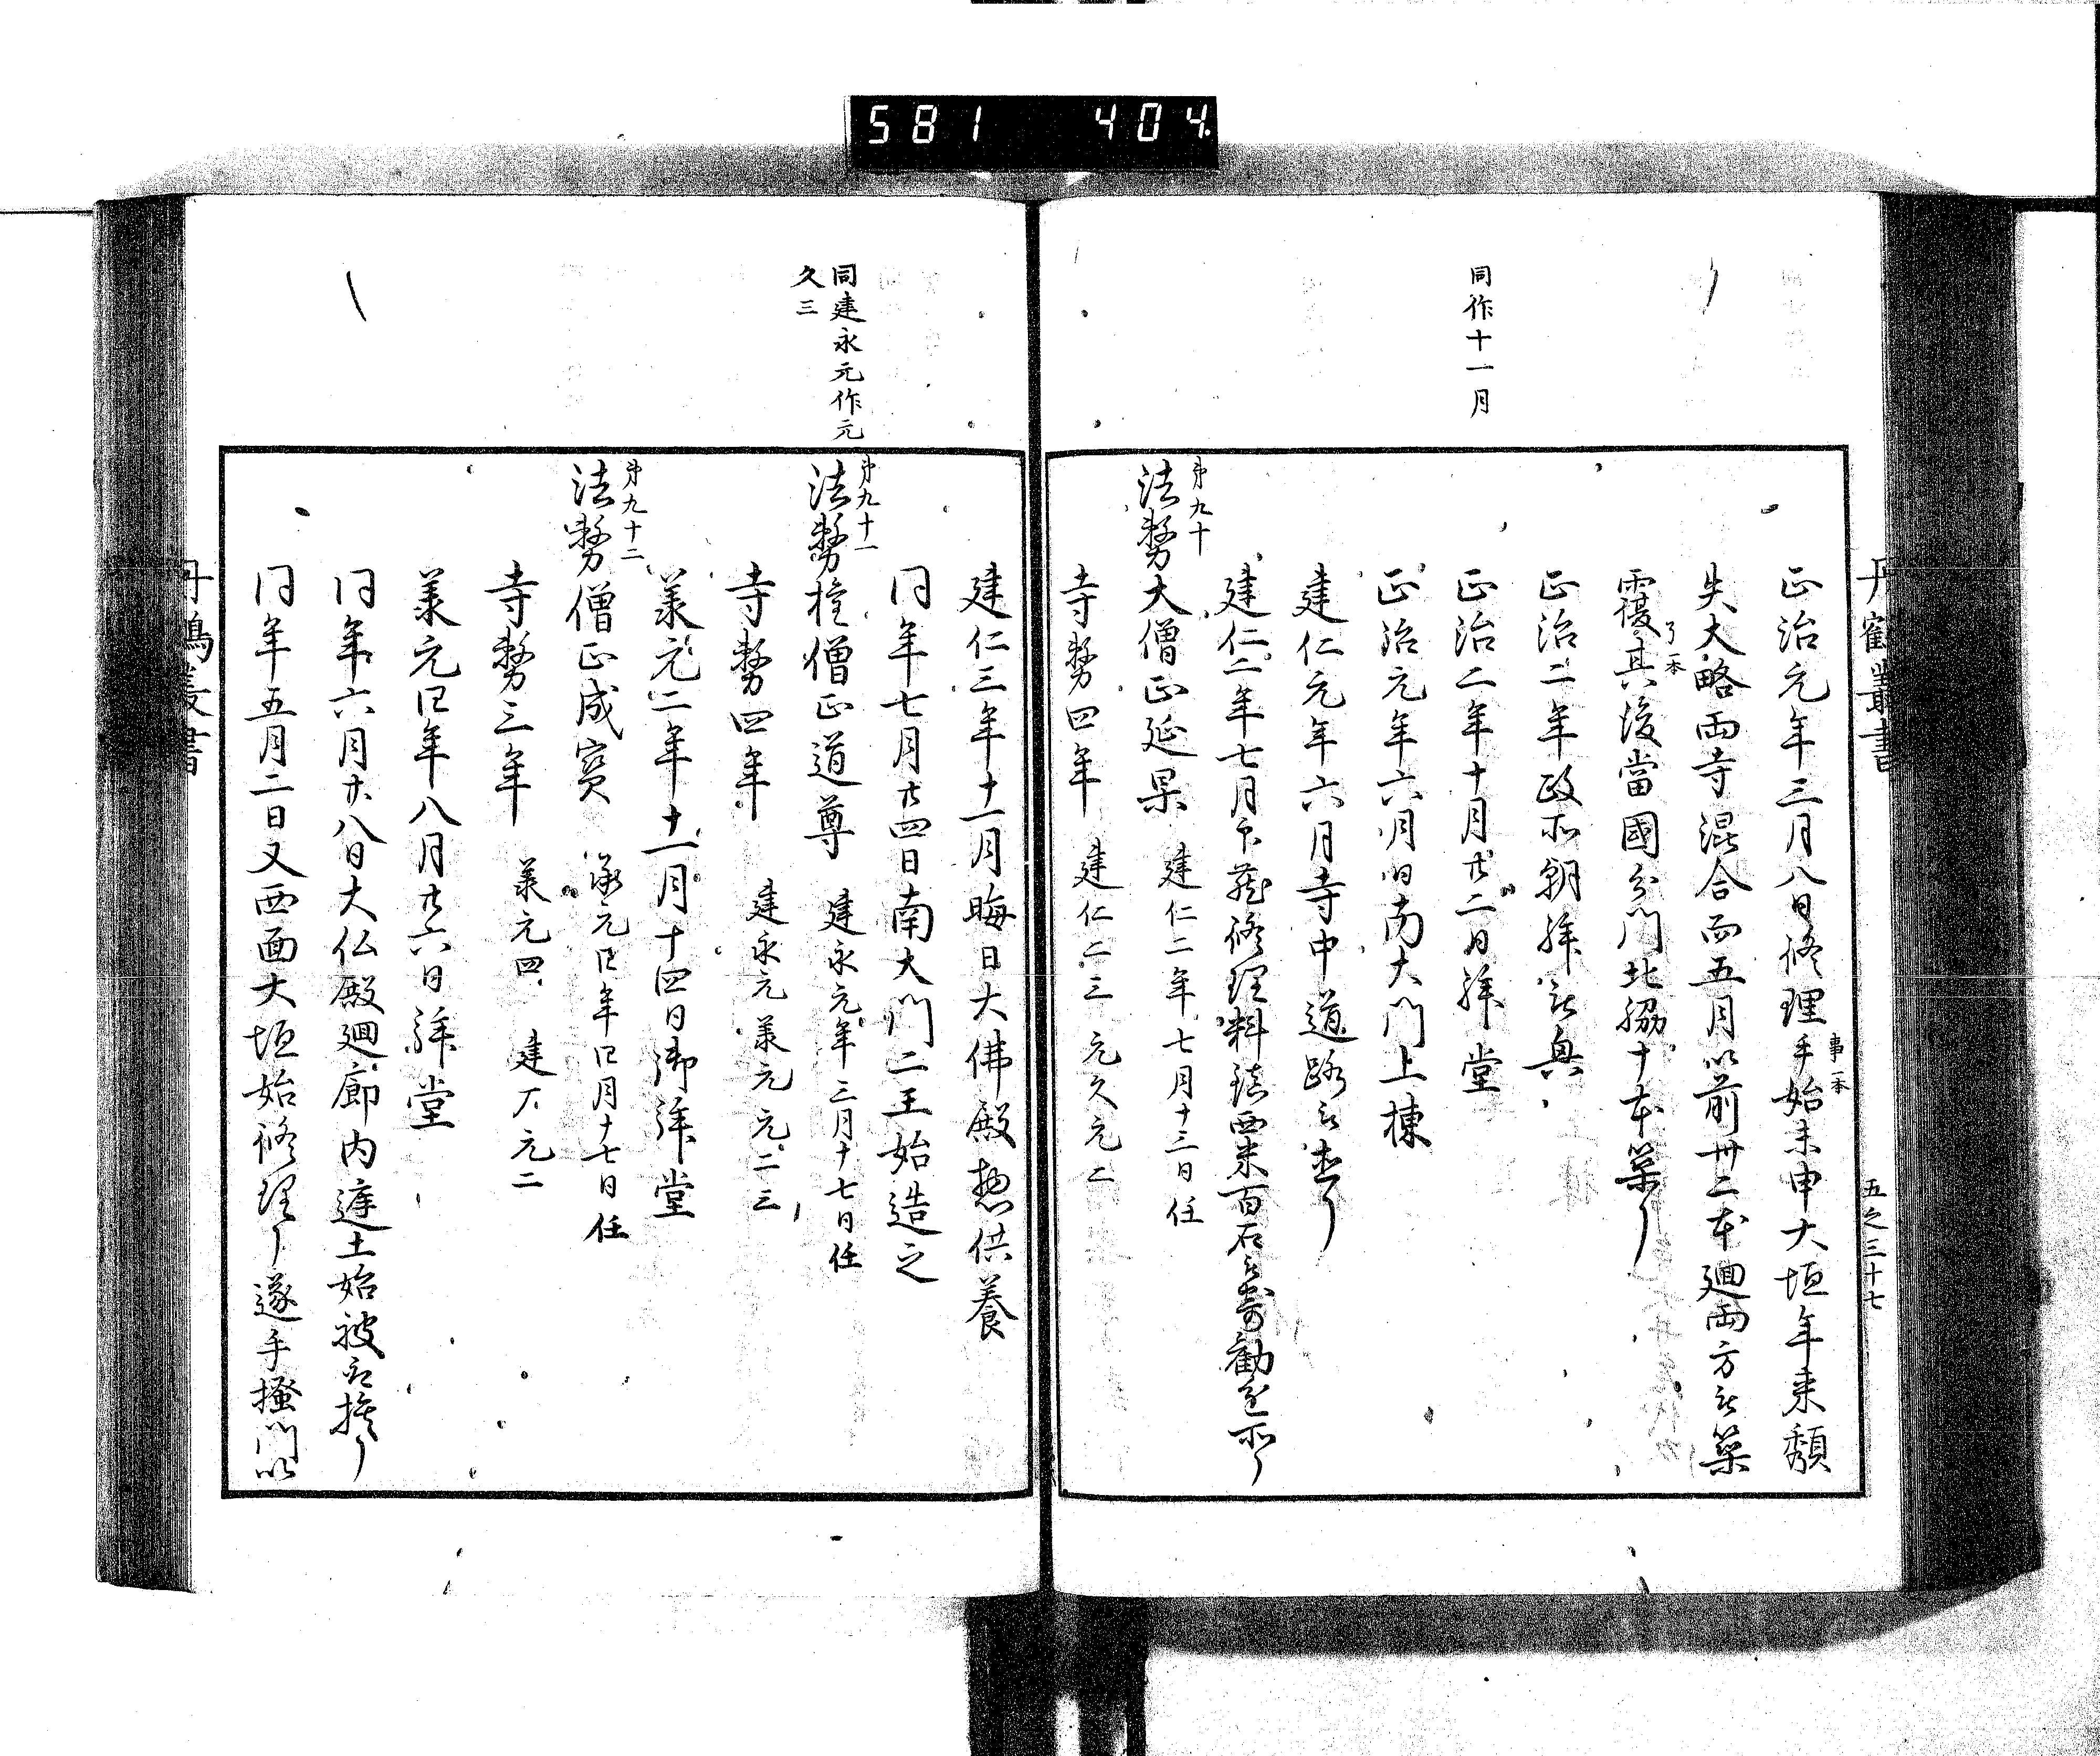 581 404
丹鶴叢書
五之三十七
正治元年三月八日修理手始未申大垣年来頽
事一本
失大略両寺混合而五月以前卅二本廻両方被築
覆其後當國分門北脇十本築了
了一本
正治二年政所朝拝被具
同作十一月
正治二年十月廿二日拝堂
正治元年六月 日南大門上棟
建仁元年六月寺中道路被造了
建仁二年七月 修理料 西米百石 勧進所了
第九十
法務大僧正延杲 建仁二年七月十三日任
寺務四年 建仁二三 元久元二
建仁三年十一月晦日大佛殿惣供養
同年七月廿四日南大門二王始造之
同建永元作元
久三
第九十一
法務権僧正道尊 建永元年三月十七日任
寺務四年 建永元 羕元元二三
羕元二年十一月十四日御拝堂
第九十二
法務僧正成寳 承元四年四月十七日任
寺務三年 羕元四 建 元二
羕元四年八月廿六日拝堂
同年六月廿八日大仏殿廻廊内庭土始被引捨了
同年五月二日又西面大垣始修理了遂手掻門以